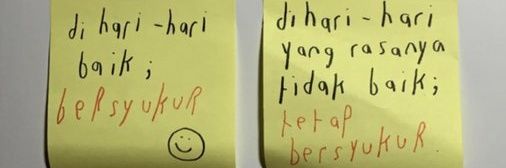 di hari - hari
baik ;
bersyukur
di hari - hari
yang rasanya
tidak baik ;
tetap
bersyukur